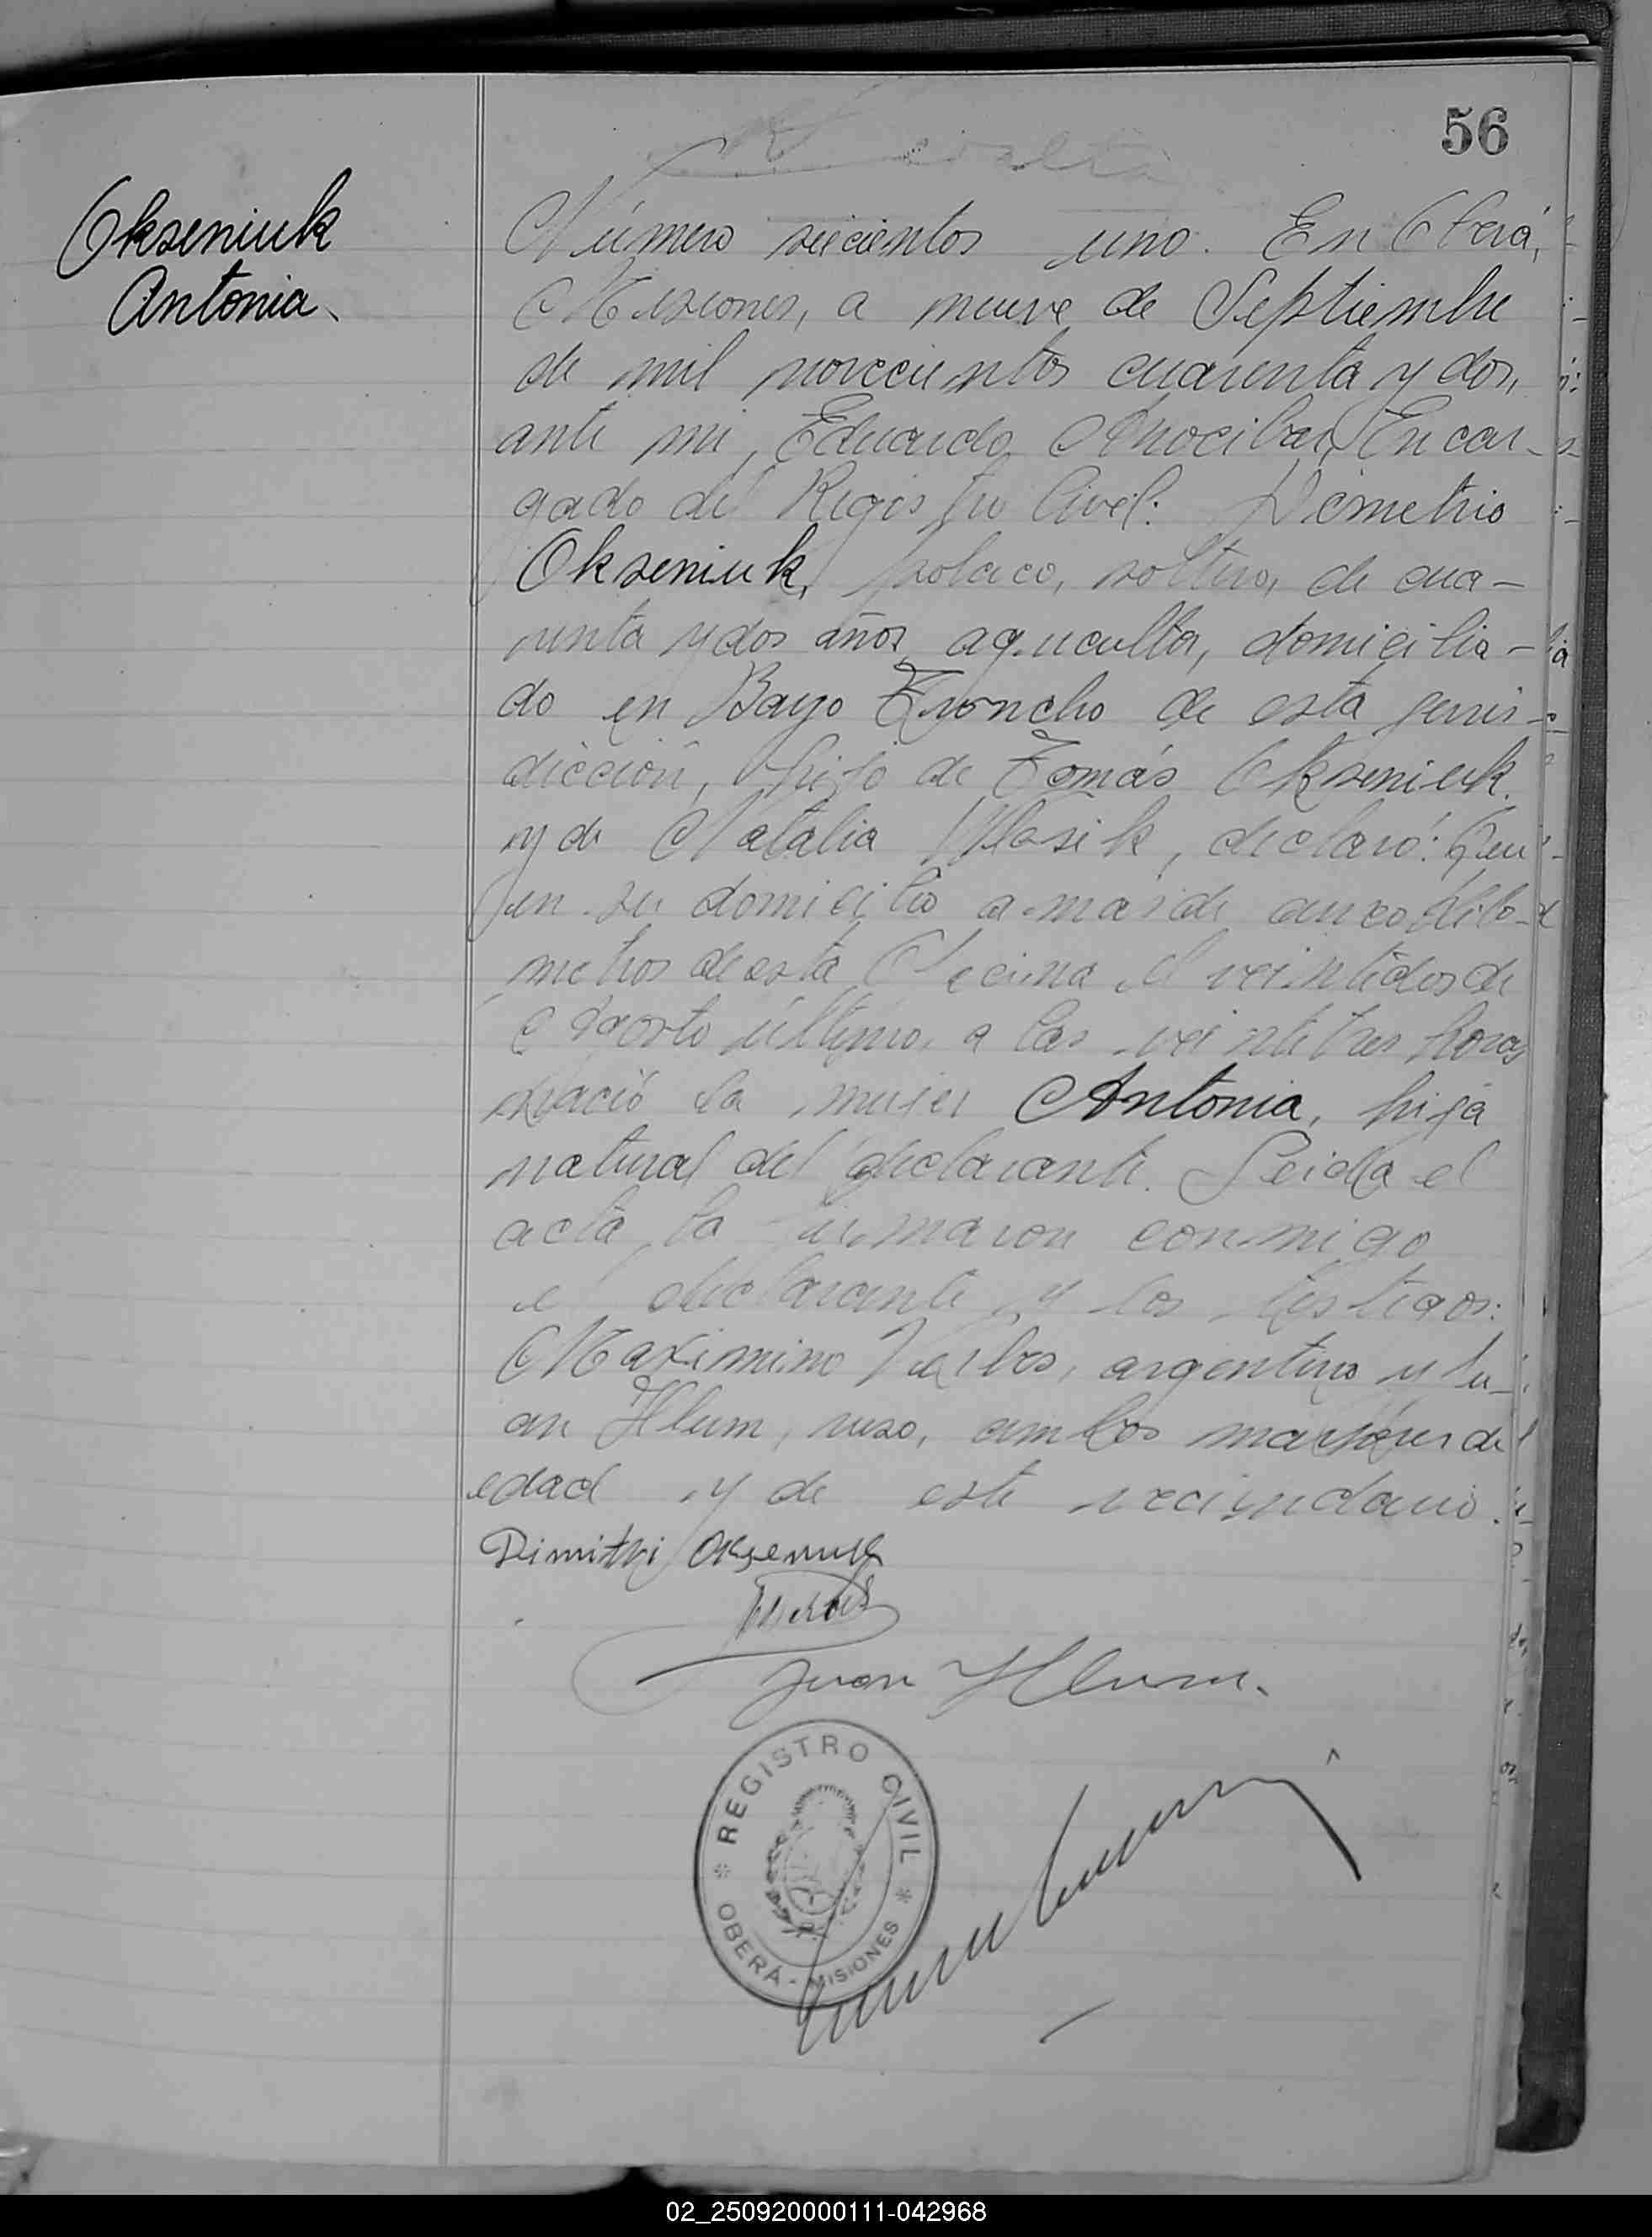 56
Okseniuk
Antonia
Número seiscientos uno. En Oberá,
Misiones, a nueve de Septiembre
de mil novecientos cuarenta y dos,
ante mi, Eduardo Encar-
gado del Registro Civil: Demetrio
Okseniuk, polaco, soltero, de cua-
renta y dos años, agricultor, domicilia-
do en Bayo Troncho de esta juris-
dicción, hijo de Tomás Okseniuk
y de Natalia Wlasik, declaró: Que
en su domicilio a más de cinco kilo-
metros de esta Oficina el veintidos de
Agosto último, a las veintitres horas
nació la mujer Antonia, hija
natural del declarante. Leida el
acta, la firmaron conmigo
el declarante y los testigos:
Maximino argentino y Ju-
an Hlum, ruso, ambos mayores de
edad y de este vecindario.
Dimitri Okseniuk
Juan Hlum.
REGISTRO CIVIL
OBERÁ - MISIONES
02_250920000111-042968